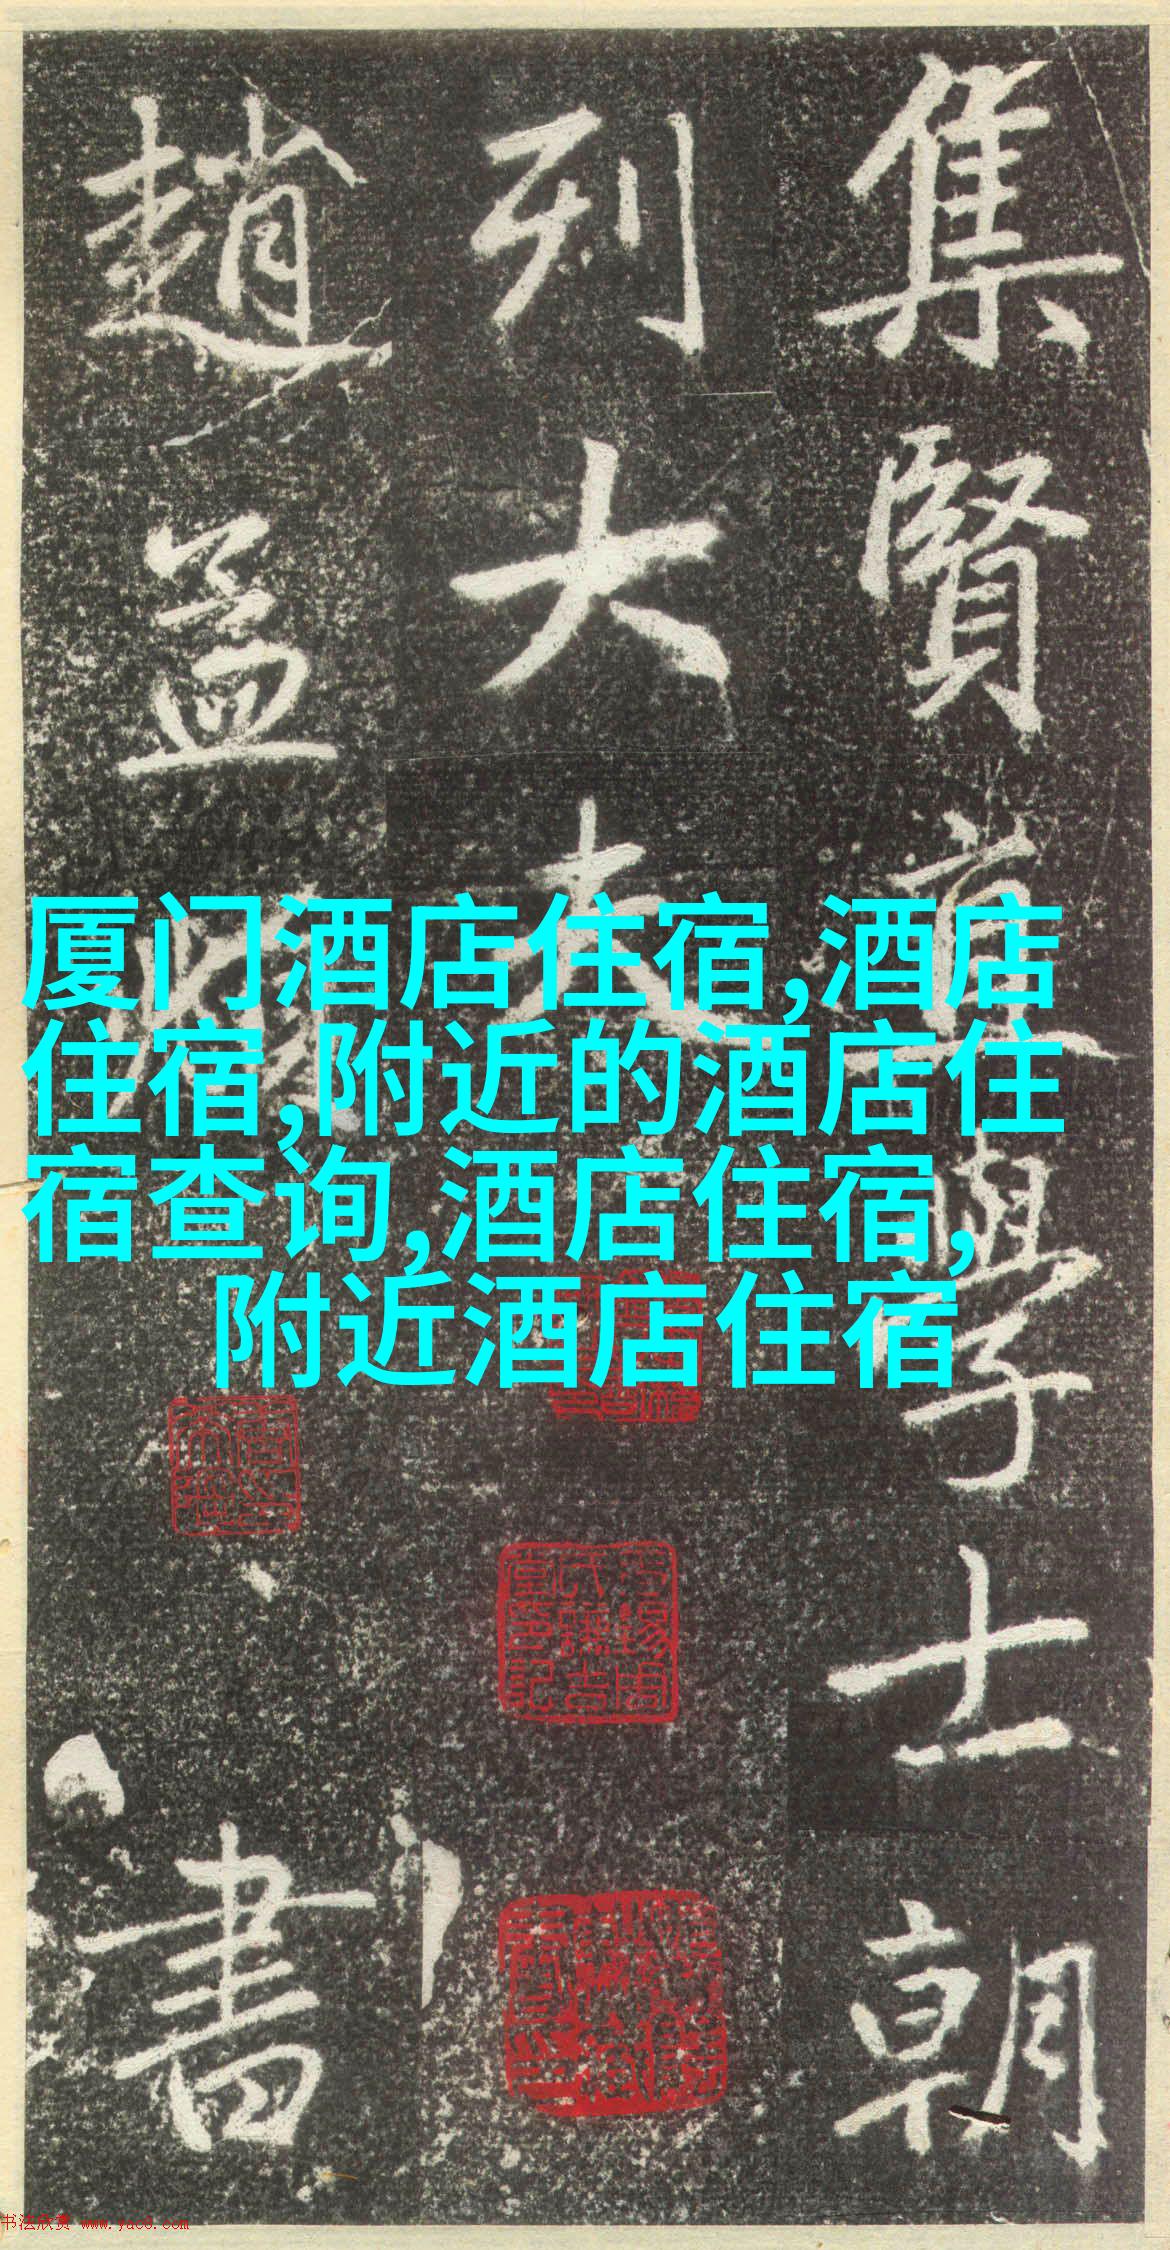 集賢直學士朝
列大夫
趙孟頫
書
厦门酒店住宿,酒店
住宿,附近的酒店住
宿查询,酒店住宿,
附近酒店住宿
书法欣赏 www.yac8.com